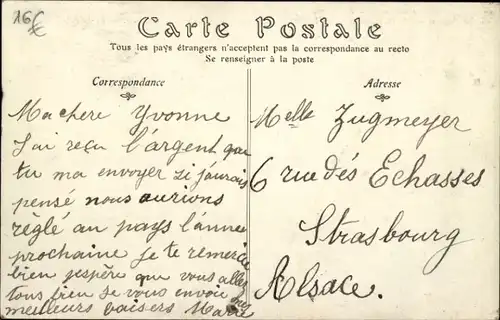 16€
Carte Postale
Tous les pays étrangers n'acceptent pas la correspondance au recto
Se renseigner à la poste
Correspondance
Ma chere Yvonne
J'ai reçu l'argent que
tu ma envoyer si j'aurais
pensé nous aurions
règlé au pays l'anne
prochaine je te remercie
bien jespère que vous aller
tous bien je vous envoie mes
meilleurs baisers Marie
Adresse
Melle Zugmeyer
6 rue dés Echasses
Strasbourg
Alsace.